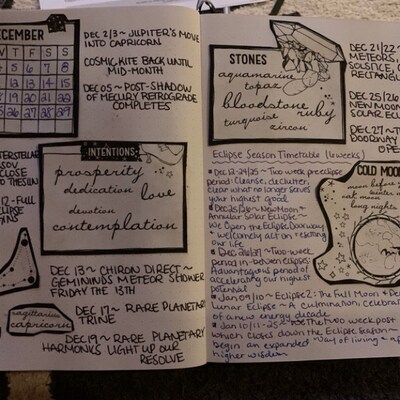 DECEMBER
W T F S S
4 5 6 7 8
12 13 14 15
19 20 21 22
25 26 27 28 29
DEC 2/3 ~ JUPITER'S MOVE
INTO CAPRICORN
COSMIC KITE BACK UNTIL
MID-MONTH
DEC 05 ~ POST-SHADOW
OF MERCURY RETROGRADE
COMPLETES
12 - FULL
INTENTIONS
prosperity
dedication
love
devotion
contemplation
DEC 13 ~ CHIRON DIRECT ~
GEMININDS METEOR SHOWER
FRIDAY THE 13TH
sagittarius
capricorn
DEC 17 ~ RARE PLANETARY
TRINE
DEC 19 ~ RARE PLANETARY
HARMONICS LIGHT UP OUR
RESOLVE
STONES
aquamarine
topaz
bloodstone
ruby
turquoise
zircon
DEC 21/22 ~
METEORS
SOLSTICE,
RECTANGL
DEC 25/26
NEW MOON
SOLAR ECL
DEC 27 ~
DOORWAY
OPE
Eclipse Season Timetable (6 weeks)
Dec 12-24/25 ~ Two week pre eclipse
period - Cleanse, declutter,
clear what no longer serves
your highest good.
Dec 25/26 - New Moon &
Annular Solar Eclipse ~
We Open the Eclipse Doorway
our life
Dec 26/27 ~ Two-week
period in-between eclipses
Advantageous period of
accelerating our highest
potential
Jan 09/10 ~ Eclipse 2: The Full Moon &
Lunar Eclipse ~ A culmination, celebra
of a new energy decade
Jan 10/11 - 25 ~ The two week post
which closes down the Eclipse Season ~
begin an expanded way of living &
higher wisdom
COLD MOON
moon before
oak moon
long nights